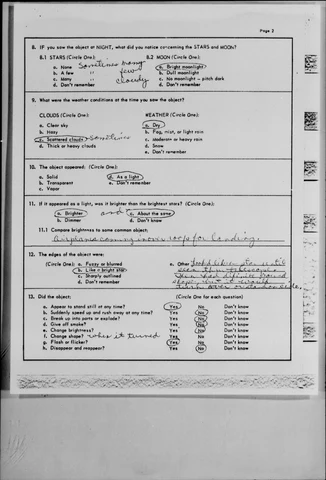 Page 2
8. IF you saw the object at NIGHT, what did you notice concerning the STARS and MOON?
8.1 STARS (Circle One): 8.2 MOON (Circle One):
a. None Sometimes many a. Bright moonlight
b. A few " few b. Dull moonlight
c. Many " cloudy c. No moonlight – pitch dark
d. Don't remember d. Don't remember
9. What were the weather conditions at the time you saw the object?
CLOUDS (Circle One): WEATHER (Circle One):
a. Clear sky a. Dry
b. Hazy b. Fog, mist, or light rain
c. Scattered clouds sometimes c. Moderate or heavy rain
d. Thick or heavy clouds d. Snow
e. Don't remember
10. The object appeared: (Circle One):
a. Solid d. As a light
b. Transparent e. Don't remember
c. Vapor
11. If it appeared as a light, was it brighter than the brightest stars? (Circle One):
a. Brighter and c. About the same
b. Dimmer d. Don't know
11.1 Compare brightness to some common object:
Airplanes coming in over for landing.
12. The edges of the object were:
(Circle One): a. Fuzzy or blurred e. Other
b. Like a bright star
c. Sharply outlined
d. Don't remember
13. Did the object: (Circle One for each question)
a. Appear to stand still at any time? Yes No Don't know
b. Suddenly speed up and rush away at any time? Yes No Don't know
c. Break up into parts or explode? Yes No Don't know
d. Give off smoke? Yes No Don't know
e. Change brightness? Yes No Don't know
f. Change shape? when it turned Yes No Don't know
g. Flash or flicker? Yes No Don't know
h. Disappear and reappear? Yes No Don't know